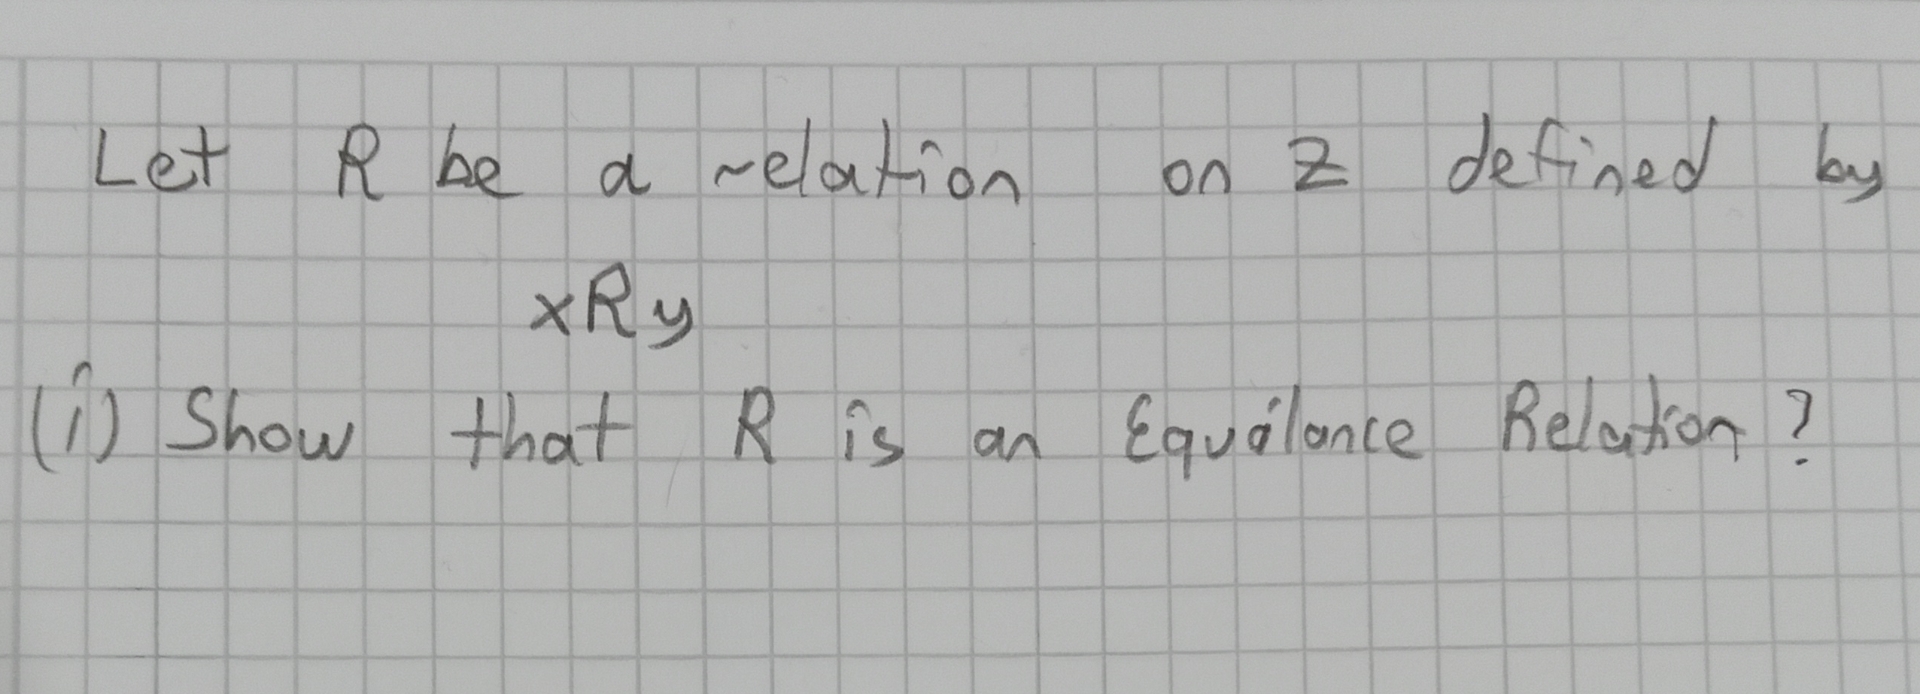 Let R be a relation on Z defined by
xRy
(i) Show that R is an Equilance Relation?